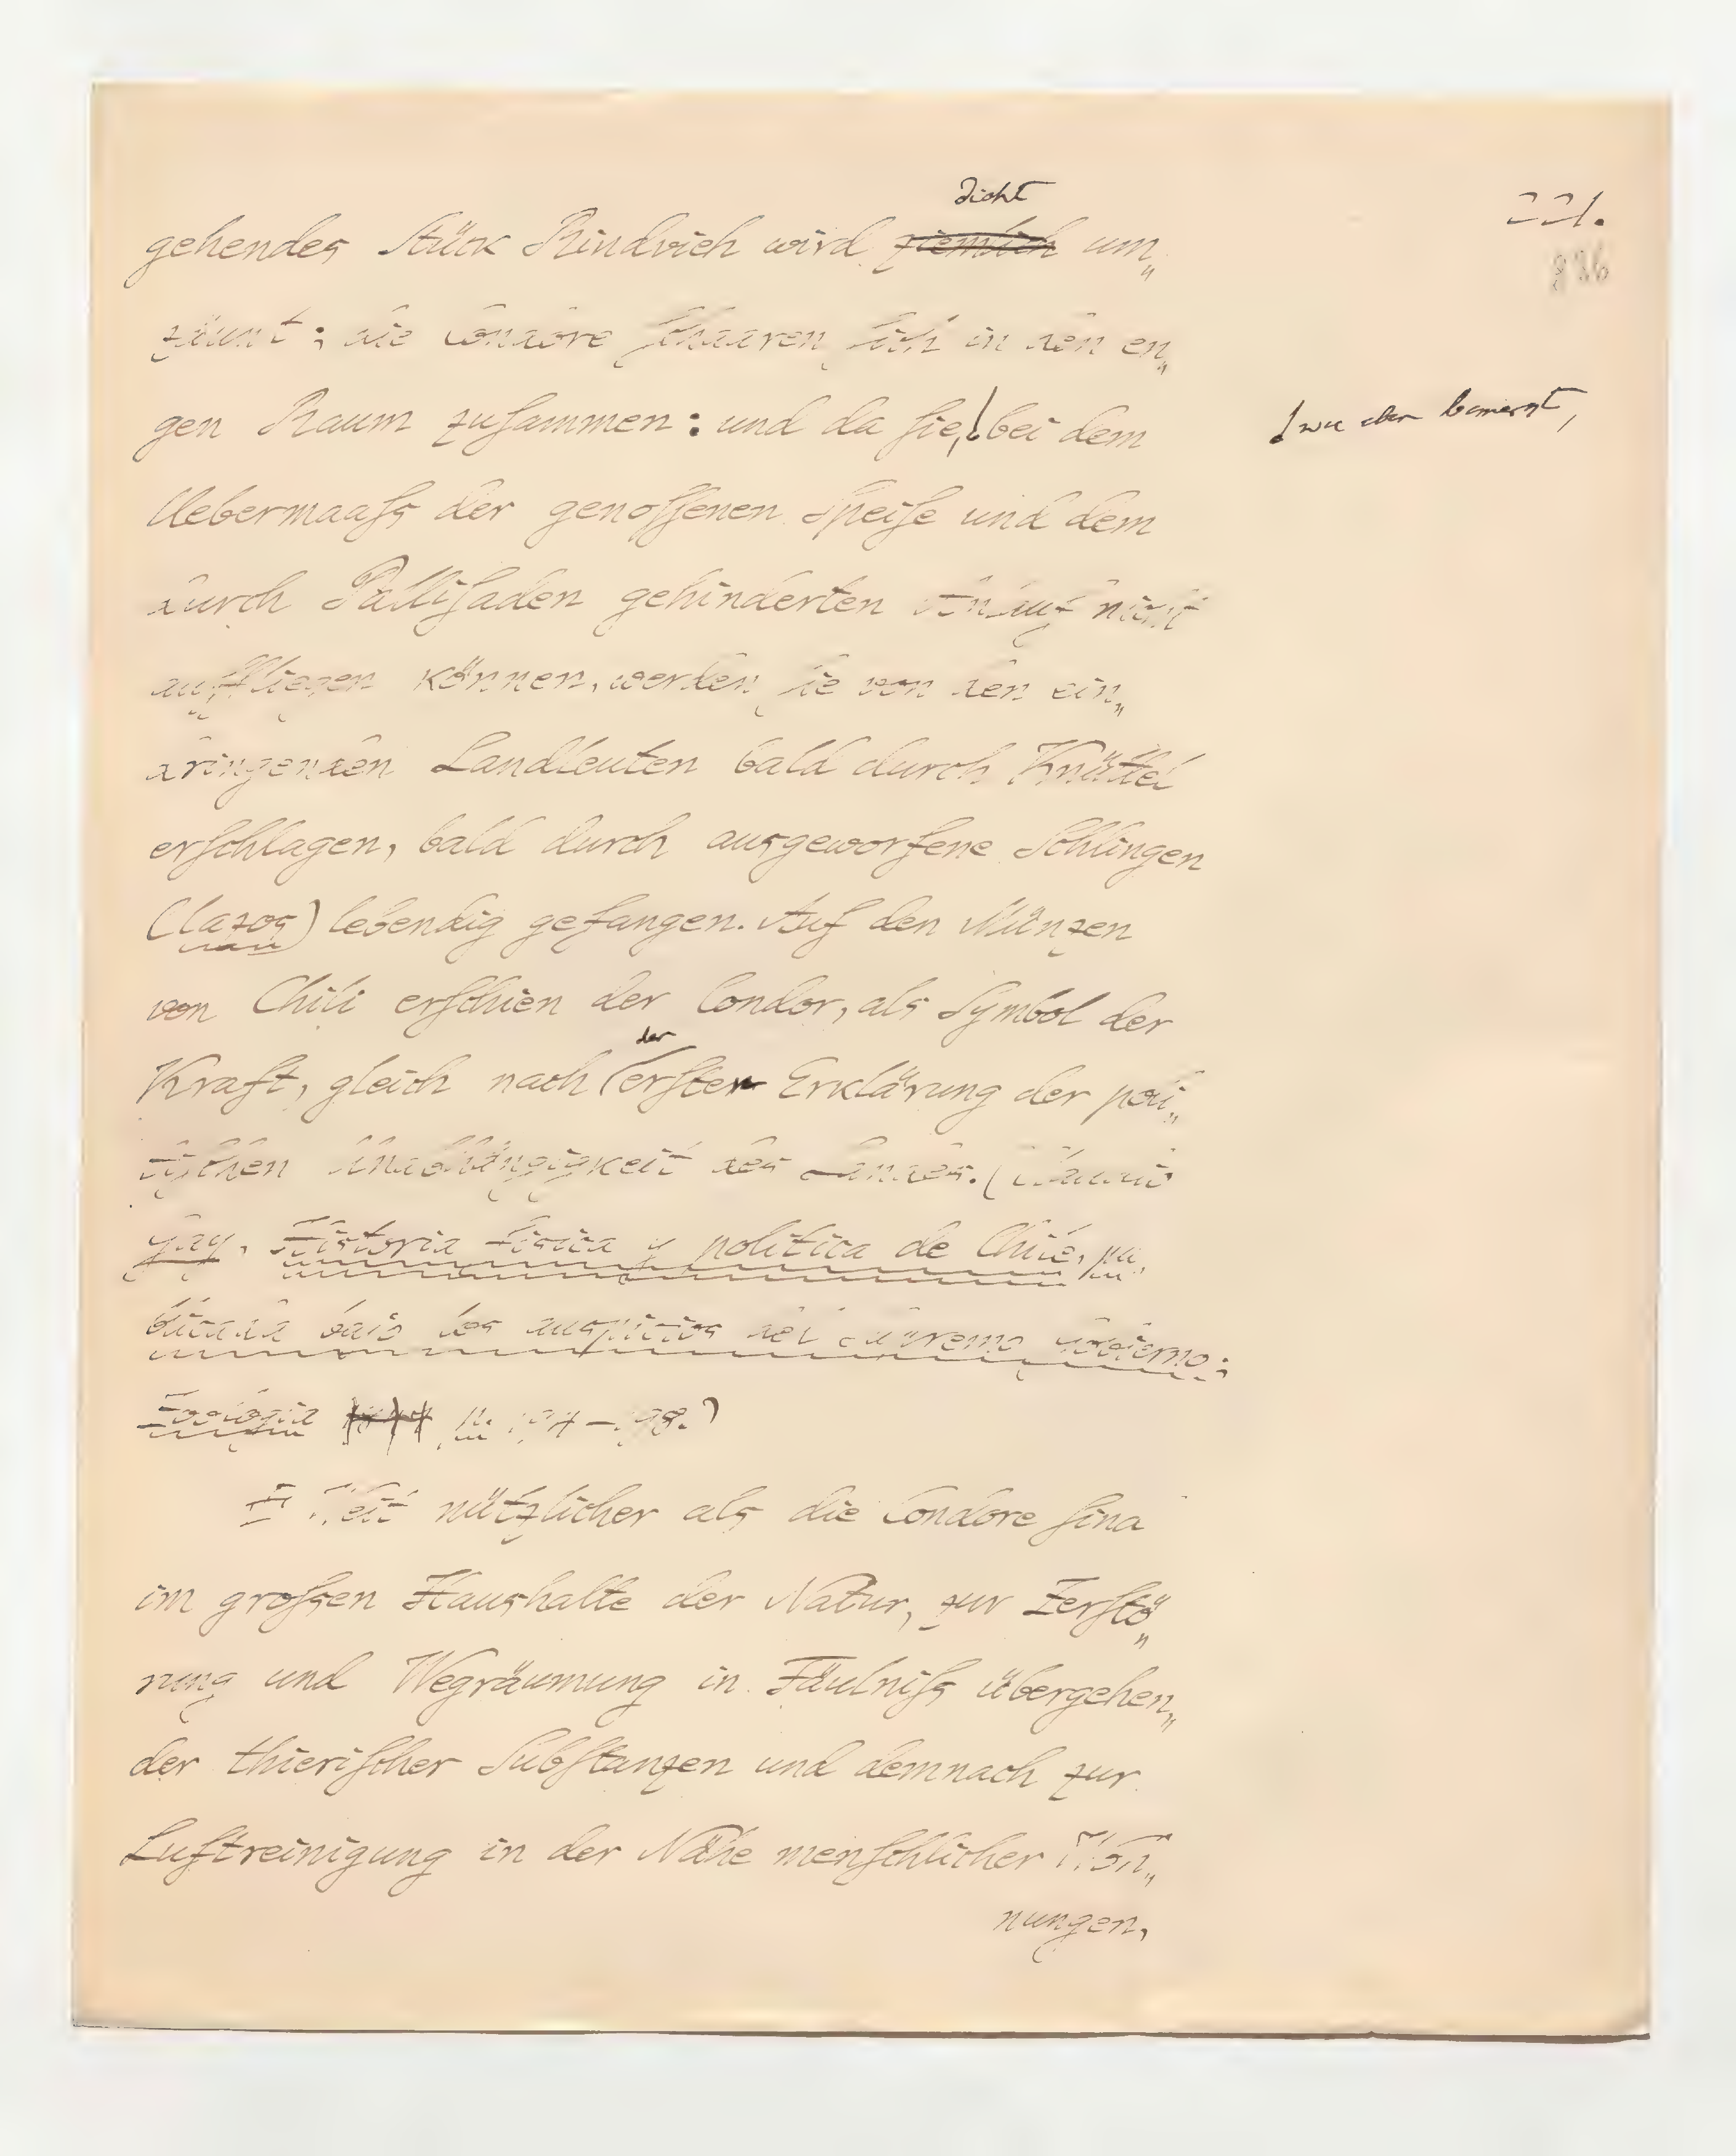 221.
836
dicht
gehendes Stück Rindvieh wird ziemlich um„
zäunt; die Condore schaaren sich in den en„
gen Raum zusammen: und da sie, bei dem
wie eben bemerkt,
Uebermaaſs der genoſſenen Speiſe und dem
durch Palliſaden gehinderten Anlauf nicht
auffliegen können, werden ſie von den ein„
dringenden Landleuten bald durch Knüttel
erſchlagen, bald durch ausgeworfene Schlingen
(lazos) lebendig gefangen. Auf den Münzen
von Chili erſchien der Condor, als Symbol der
der
Kraft, gleich nach erſten Erklärung der poli„
tiſchen Unabhängigkeit des Landes. (Claudio
Gay, Historia fisica y politica de Chile, pu„
blicada bajo los auspicios del Supremo Gobierno;
Zoologia p. 194–198.)
Weit nützlicher als die Condore ſind
im groſsen Haushalte der Natur, zur Zerſtö„
rung und Wegräumung in Fäulniſs übergehen„
der thieriſcher Subſtanzen und demnach zur
Luftreinigung in der Nähe menſchlicher Woh„
nungen,